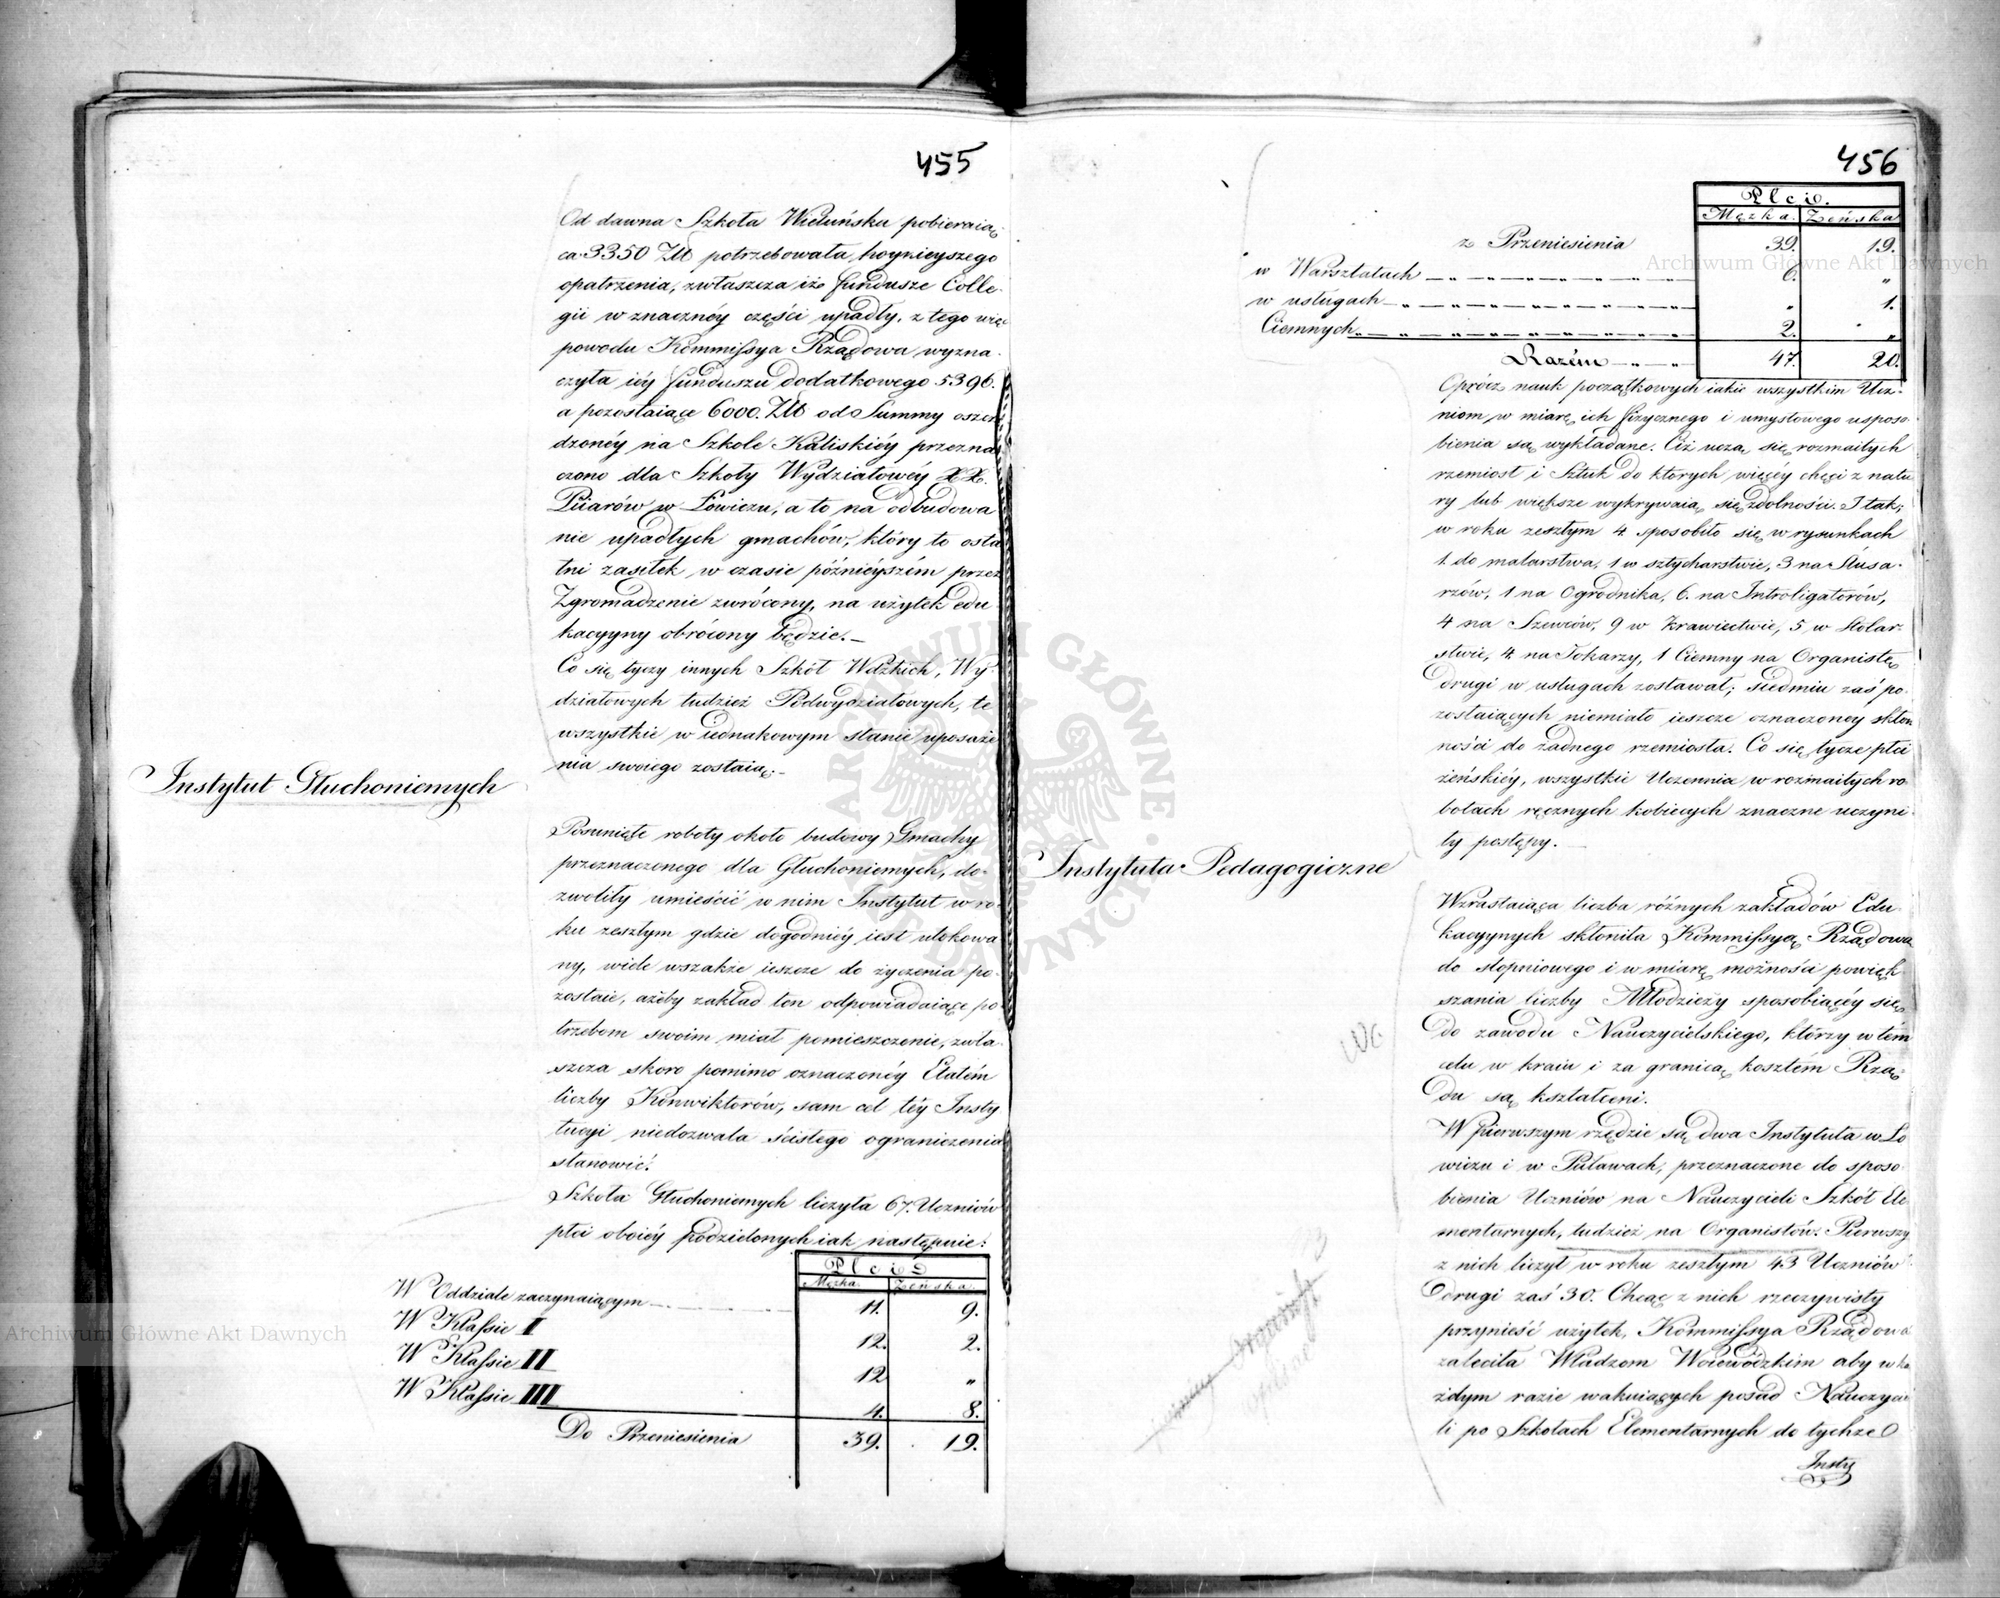 455
Od dawna Szkoła Wieluńska pobieraią
ca 3350 Zł potrzebowała hoynieyszego
opatrzenia, zwłaszcza iż fundusze Colle-
gii w znacznéy części upadły, z tego więc
powodu Kommissya Rządowa wyzna-
czyła iéy funduszu dodatkowego 5396.
a pozostaiące 6000. Zł od Summy oszczę
dzonéy na Szkole Kaliskiéy przezna
czono dla Szkoły Wydziałowéy XX.
Piiarów w Łowiczu, a to na odbudowa
nie upadłych gmachów, który to osta
tni zasiłek w czasie późnieyszém przez
Zgromadzenie zwrócony, na użytek edu
kacyyny obrócony będzie.—
Co się tyczy innych Szkół Wdzkich, Wy-
działowych tudzież Podwydziałowych, te
wszystkie w iednakowym stanie uposaże
nia swoiego zostaią.—
Instytut Głuchoniemych
Posunięte roboty około budowy Gmachu
przeznaczonego dla Głuchoniemych, do-
zwoliły umieścić w nim Instytut w ro-
ku zeszłym gdzie dogodniéy iest ulokowa
ny, wiele wszakże ieszcze do życzenia po-
zostaie, ażeby zakład ten odpowiadaiące po
trzebom swoim miał pomieszczenie, zwła-
szcza skoro pomimo oznaczonéy Etatém
liczby Konwiktorów, sam cel téy Insty
tucyi niedozwala ścisłego ograniczenia
stanowić.
Szkoła Głuchoniemych liczyła 67. Uczniów
płci oboiéy podzielonych iak następuie:
Płeiś
Męzka. Żeńska.
W Oddziale zaczynaiącym 11. 9.
W Klassie I 12. 2.
W Klassie II 12 "
W Klassie III 4. 8.
Do Przeniesienia 39. 19.
456
Płciś.
Męzka. Żeńska
z Przeniesienia 39. 19.
w Warsztatach 6. "
w usługach " 1.
Ciemnych 2. "
Razém 47. 20.
Oprócz nauk początkowych iakie wszystkim Ucz-
niom w miarę ich fizycznego i umysłowego usposo-
bienia są wykładane. Ciż uczą się rozmaitych
rzemiosł i Sztuk do których więcéy chęci z natu
ry lub większe wykrywaią się zdolności. I tak;
w roku zeszłym 4 sposobiło się w rysunkach
1 do malarstwa, 1 w sztycharstwie, 3 na Ślusa-
rzów, 1 na Ogrodnika, 6. na Introligatorów,
4 na Szewców, 9 w Krawiectwie, 5 w Stolar-
stwie, 4 na Tokarzy, 1 Ciemny na Organistę
drugi w usługach zostawał; siedmiu zaś po-
zostaiących niemiało ieszcze oznaczoney skłon
ności do żadnego rzemiosła. Co się tycze płci
żeńskiéy, wszystkie Uczennice w rozmaitych ro-
botach ręcznych kobiecych znaczne uczyni-
ły postępy.—
Instytuta Pedagogiczne
Wzrastaiąca liczba różnych zakładów Edu-
kacyynych skłoniła Kommissyą Rządową
do stopniowego i w miarę możności powięk-
szania liczby Młodzieży sposobiącéy się
do zawodu Nauczycielskiego, którzy w tém
celu w kraiu i za granicą kosztém Rzą-
du są kształceni.
W pierwszym rzędzie są dwa Instytuta w Ło
wiczu i w Puławach, przeznaczone do sposo-
bienia Uczniów na Nauczycieli Szkół Ele
mentarnych, tudzież na Organistów. Pierwszy
z nich liczył w roku zeszłym 43 Uczniów
drugi zaś 30. Chcąc z nich rzeczywisty
przynieść użytek, Kommissya Rządowa
zaleciła Władzom Woiewódzkim aby w ka
żdym razie wakuiących posad Nauczycie
li po Szkołach Elementarnych do tychże
Insty
ARCHIWUM GŁÓWNE AKT DAWNYCH
Archiwum Główne Akt Dawnych
Archiwum Główne Akt Dawnych